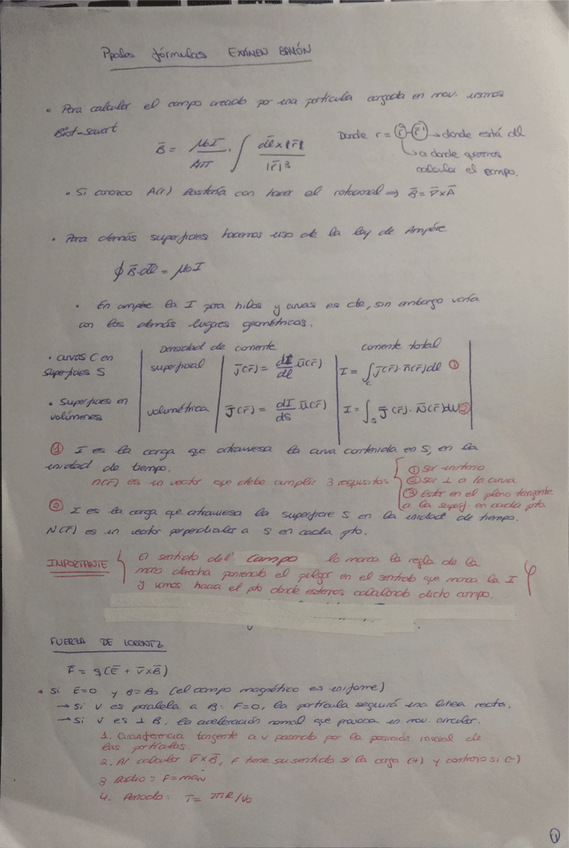 Ppales fórmulas EXÁMEN BALÓN
• Para calcular el campo creado por una partícula cargada en mov. usamos
Biot-Savart
B̄ = μ₀I / 4π · ∫ d̄l x |r̄| / |r̄|³
Donde r = r̄ - r̄' → donde está dl
↳ a donde queremos
calcular el campo.
• Si conozco A(r) bastaría con hacer el rotacional ⇒ B̄ = ∇̄ x Ā
• Para demás superficies hacemos uso de la ley de Ampère
∮ B̄·d̄l = μ₀I
• En ampère la I para hilos y curvas es cte, sin embargo varía
con los demás lugares geométricos.
densidad de corriente
corriente total
• curvas C en
superficies S
superficial
J̄(r̄) = dI/dl ū(r̄)
I = ∫c J̄(r̄)· n̄(r̄) dl ①
• Superficies en
volúmenes
volumétrica
J̄(r̄) = dI/ds ū(r̄)
I = ∫s J̄(r̄) · N̄(r̄) ②
① I es la carga que atraviesa la curva contenida en S, en la
unidad de tiempo.
n(r̄) es un vector que debe cumplir 3 requisitos
① Ser unitario
② Ser ⊥ a la curva
③ Estar en el plano tangente
a la superf. en cada pto.
② I es la carga que atraviesa la superficie S en la unidad de tiempo.
N(r̄) es un vector perpendicular a S en cada pto.
IMPORTANTE
El sentido del campo lo marca la regla de la
mano derecha poniendo el pulgar en el sentido que marca la I
y vamos hacia el pto donde estemos calculando dicho campo.
FUERZA DE LORENTZ
F̄ = q(Ē + v̄ x B̄)
• Si E=0 y B = B₀ (el campo magnético es uniforme)
→ Si v es paralela a B. F=0, la partícula seguirá una línea recta.
→ Si v es ⊥ B, la aceleración normal que provoca un mov. circular.
1. Circunferencia tangente a v pasando por la posición inicial de
las partículas.
2. Al calcular v̄ x B̄, F tiene su sentido si la carga (+) y contrario si (-)
3 Radio = F = m·aN
4. Periodo: T = 2πR/v₀
1